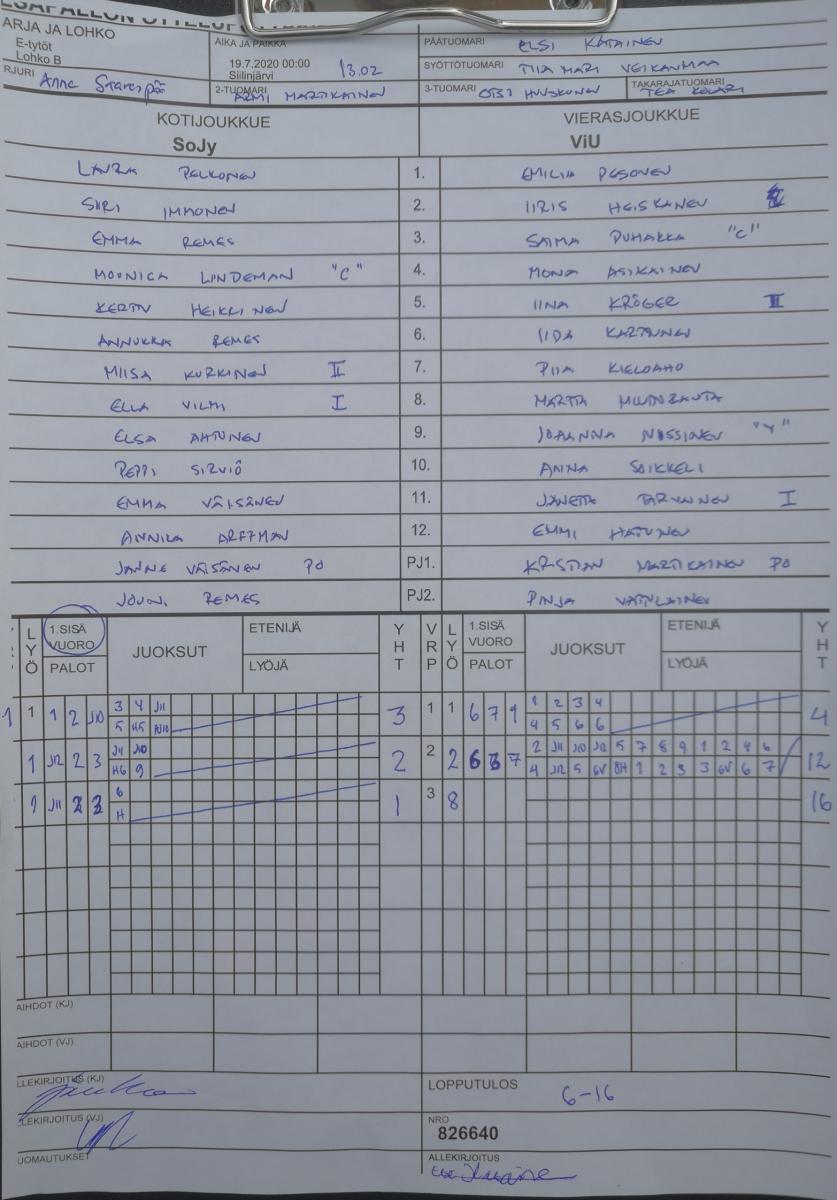 ARJA JA LOHKO
E-tytöt
Lohko B
AIKA JA PAIKKA
19.7.2020 00:00 13.02
Siilinjärvi
PÄÄTUOMARI ELSI KATAINEN
SYÖTTÖTUOMARI TIIA MARI VEIKANMAA
RJURI Anne
2-TUOMARI ARMI MARTIKAINEN
3-TUOMARI HUUSKONEN
TAKARAJATUOMARI TEA KOLARI
KOTIJOUKKUE VIERASJOUKKUE
SoJy ViU
LAURA PELKONEN 1. EMILIA PESONEN
SIIRI IMMONEN 2. IIRIS HEISKANEN
EMMA REMES 3. SAIMA PUHAKKA "C"
MOONICA LINDEMAN "C" 4. MONA ASIKAINEN
KERTTU HEIKKINEN 5. IINA KRÖGER II
ANNUKKA REMES 6. IIDA KARTUNEN
MIISA KURKINEN II 7. PIIA KIELOAHO
ELLA VILMI I 8. MARTTA
ELSA AHTONEN 9. JOHANNA NISSINEN
PEPPI SIRVIÖ 10. ANNA SOIKKELI
EMMA VÄISÄNEN 11. JANETTA TARVAINEN I
ANNIKA ARFFMAN 12. EMMI HATUNEN
JANNE VÄISÄNEN PO PJ1. KRISTIAN MARTIKAINEN PO
JOUNI REMES PJ2. PINJA VATULAINEN
LYÖ 1.SISÄ VUORO JUOKSUT ETENIJÄ YHT VRP LYÖ 1.SISÄ VUORO JUOKSUT ETENIJÄ YHT
PALOT LYÖJÄ PALOT LYÖJÄ
1 1 2 J10 3 4 J11 3 1 1 6 7 9 1 2 3 4 4
5 H5 4 5 6 6
1 J12 2 3 J4 J10 2 2 2 6 7 2 J11 J10 J12 5 7 8 9 1 2 4 6 12
H6 9 4 J12 5 6V 8H 1 2 3 3 6V 6 7
9 J11 2 6 1 3 8 16
H
AIHDOT (KJ)
AIHDOT (VJ)
LLEKIRJOITUS (KJ) LOPPUTULOS 6-16
LEKIRJOITUS (VJ) NRO
826640
UOMAUTUKSET ALLEKIRJOITUS